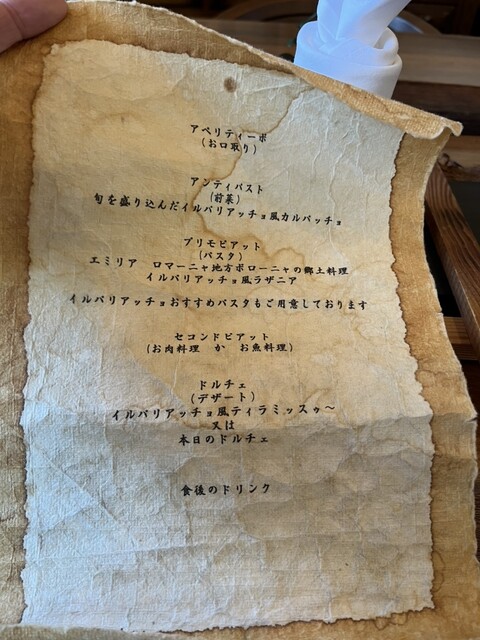 アペリティーボ
(お口取り)
アンティパスト
(前菜)
旬を盛り込んだイルパリアッチョ風カルパッチョ
プリモピアット
(パスタ)
エミリア　ロマーニャ地方ボローニャの郷土料理
イルパリアッチョ風ラザニア
イルパリアッチョおすすめパスタもご用意しております
セコンドピアット
(お肉料理　か　お魚料理)
ドルチェ
(デザート)
イルパリアッチョ風ティラミッスゥ～
又は
本日のドルチェ
食後のドリンク